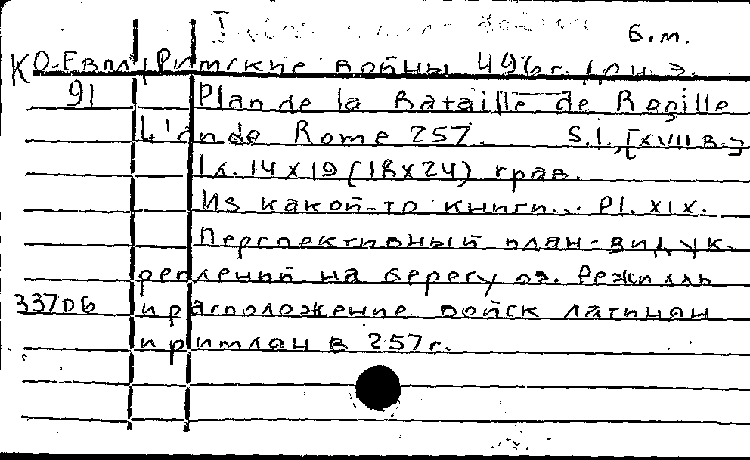 б.м.
КО-Евпл Римские войны 496г. до н.э.
91 Plan de la Bataille de Regille
L'an de Rome 257. S.l., [XVIII в.]
1 л. 14 x 19 (18x24) грав.
Из какой-то книги... Pl. XIX.
Перспективный план-вид ук-
реплений на берегу оз. Режилль
33706 и расположение войск латинян
и римлян в 257г.